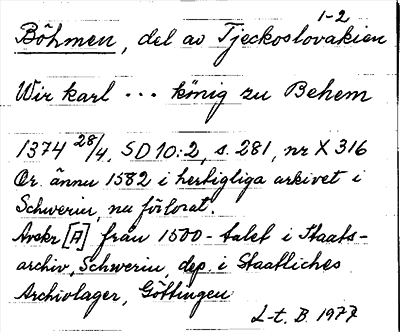 1-2
Böhmen, del av Tjeckoslovakien
Wir karl ... könig zu Behem
1374 28/4, SD 10:2, s. 281, nr X 316
Or. ännu 1582 i hertigliga arkivet i
Schwerin, nu förlorat.
Avskr [A] från 1500-talet i Staats-
archiv, Schwerin, dep. i Staatliches
Archivlager, Göttingen
L-t. B. 1977